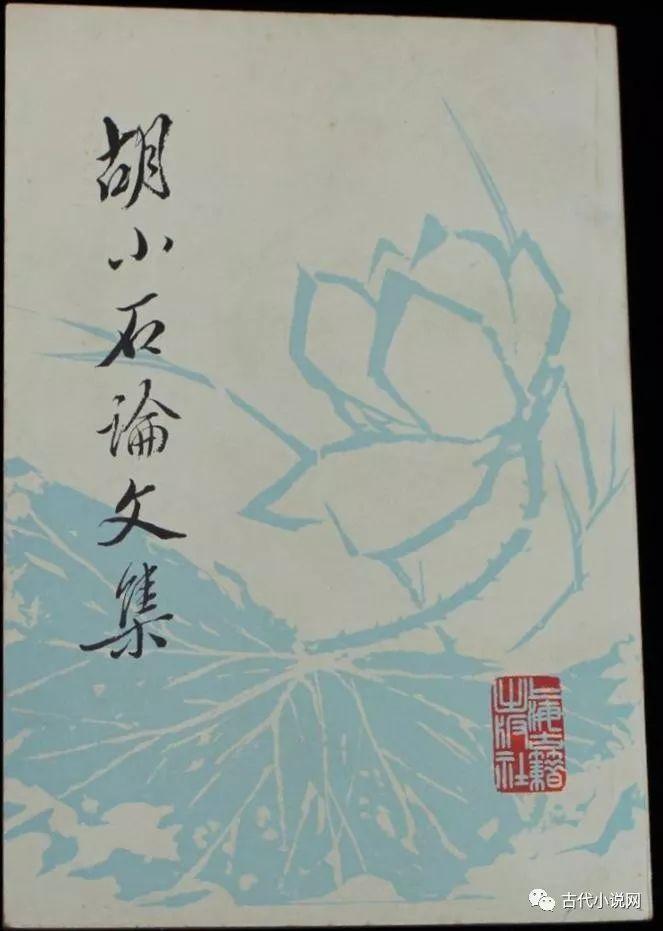 胡小石論文集
上海古籍
出版社
古代小说网